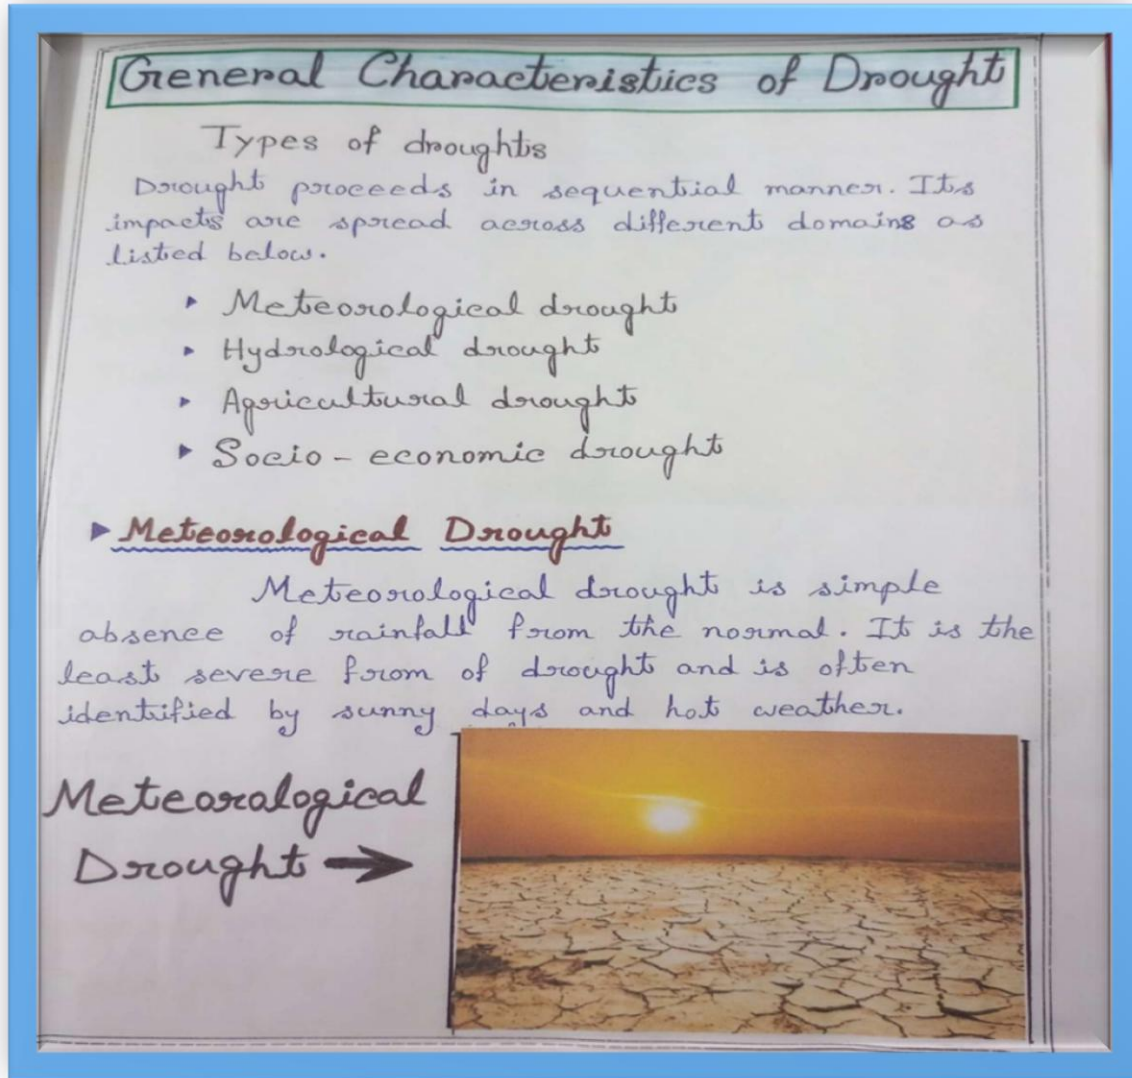 General Characteristics of Drought
Types of droughts
Drought proceeds in sequential manner. Its
impacts are spread across different domains as
listed below.
Meteorological drought
Hydrological drought
Agricultural drought
Socio - economic drought
Meteorological Drought
Meteorological drought is simple
absence of rainfall from the normal. It is the
least severe from of drought and is often
identified by sunny days and hot weather.
Meteorological
Drought →